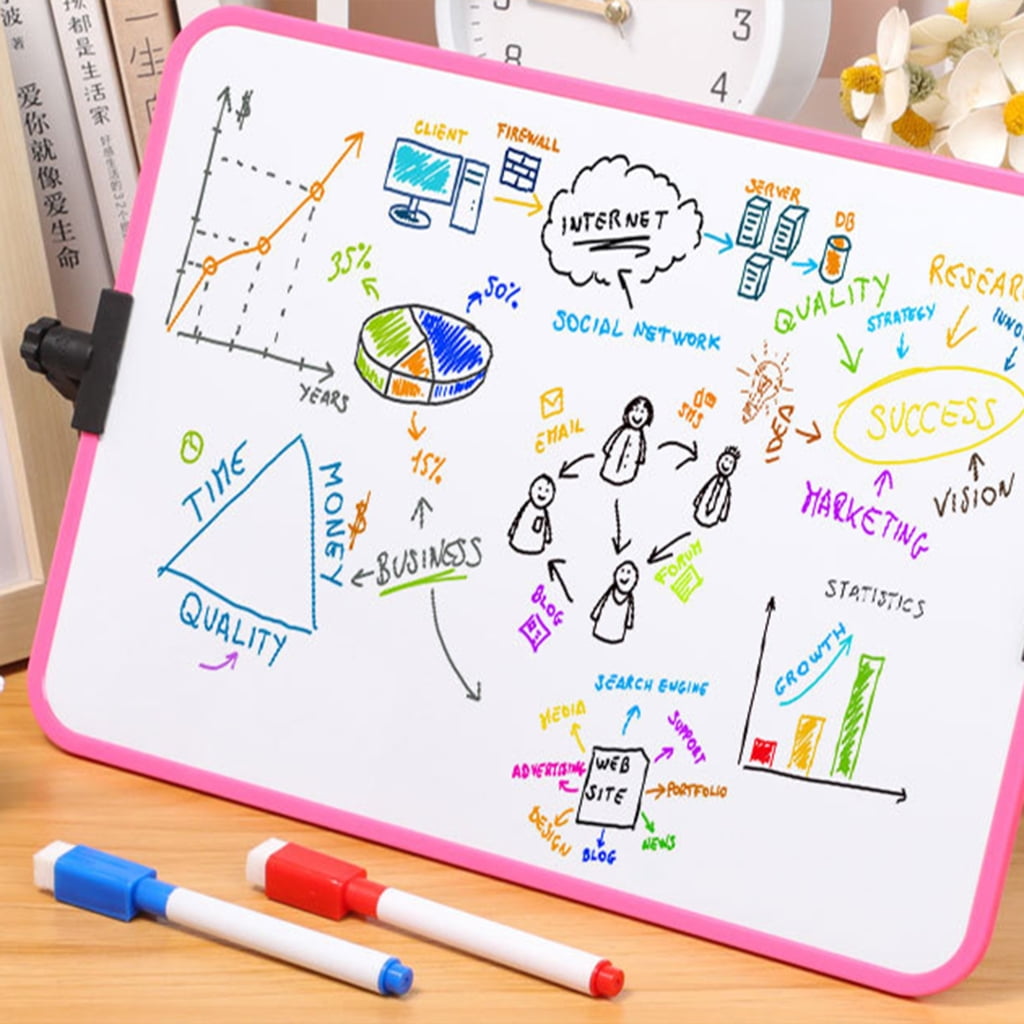 波 著
爱你就像爱生命
都是生活家
一生
3
8
4
$
YEARS
CLIENT
FIREWALL
INTERNET
SERVER
DB
35%
50%
15%
SOCIAL NETWORK
QUALITY
RESEAR
STRATEGY
INNO
SUCCESS
IDEA
MARKETING
VISION
EMAIL
SMS
FORUM
BLOG
TIME
MONEY
$
QUALITY
BUSINESS
STATISTICS
GROWTH
SEARCH ENGINE
MEDIA
SUPPORT
ADVERTISING
WEB
SITE
PORTFOLIO
DESIGN
BLOG
NEWS